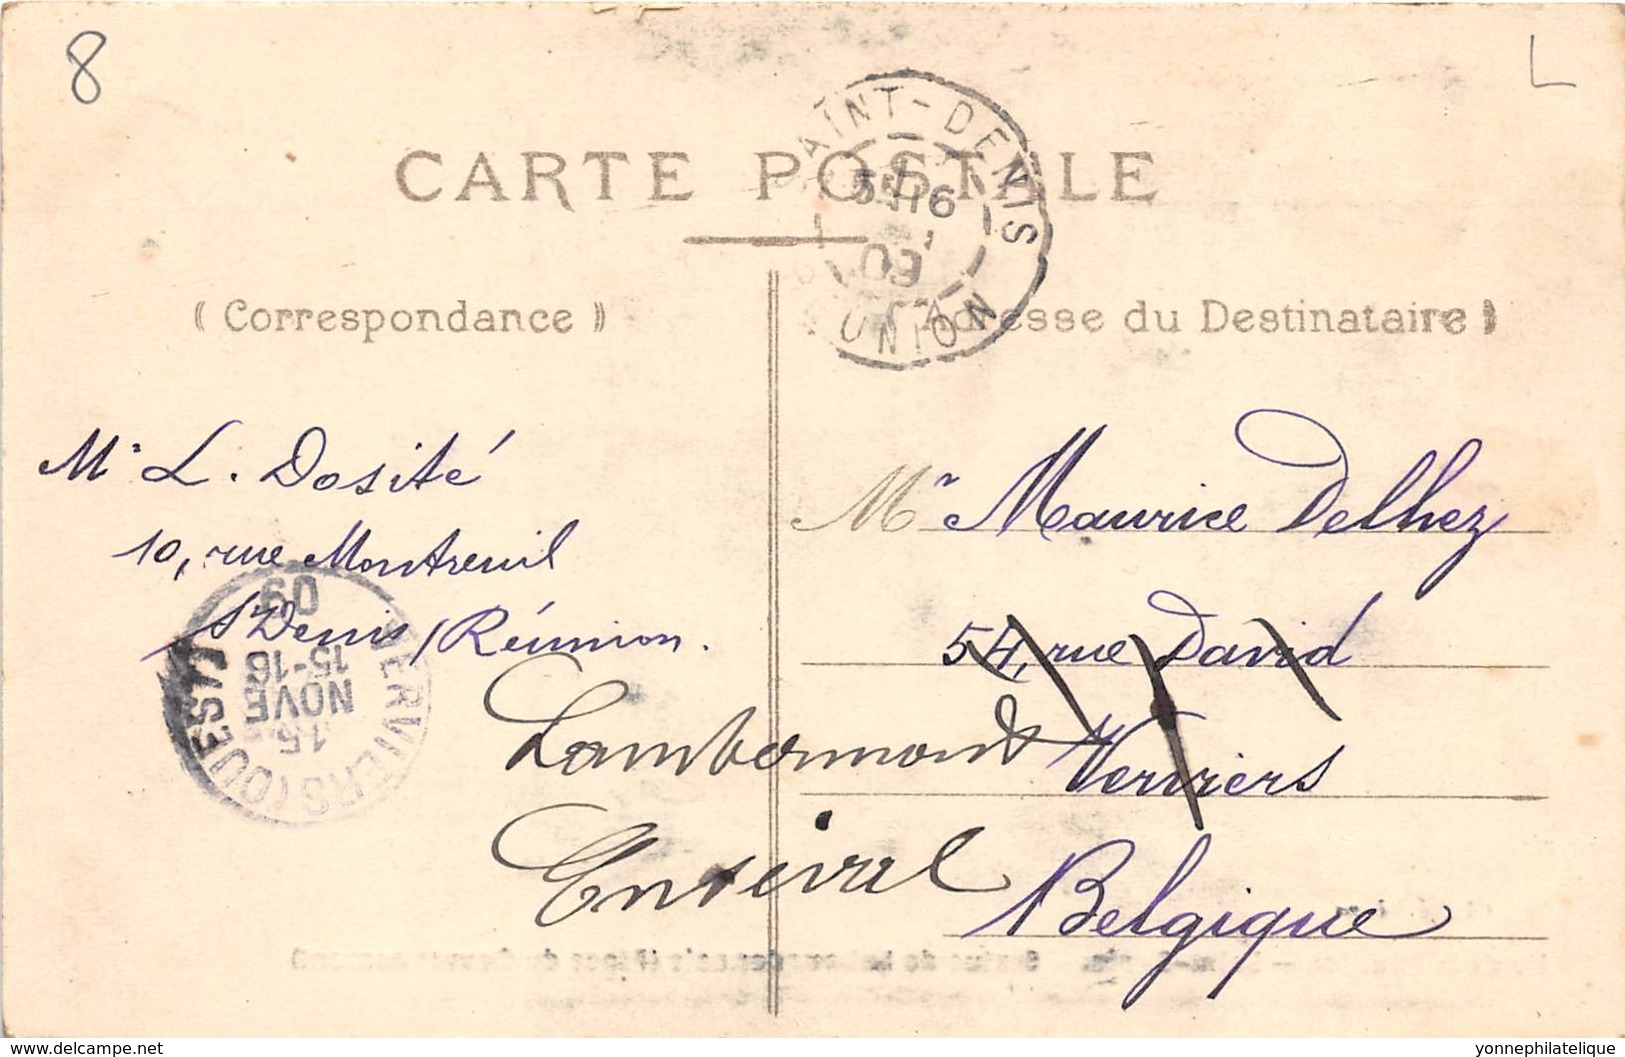 8
L
CARTE POSTALE
SAINT-DENIS
16
09
RÉUNION
( Correspondance )
Adresse du Destinataire )
Mr L. Dosité
10, rue Montreuil
St Denis, Réunion.
Mr Maurice Delhez
54, rue David
Verviers
Belgique
Lambermont
Ensival
VERVIERS (OUEST)
15
NOVE
15-16
09
delcampe.net
yonnephilatelique